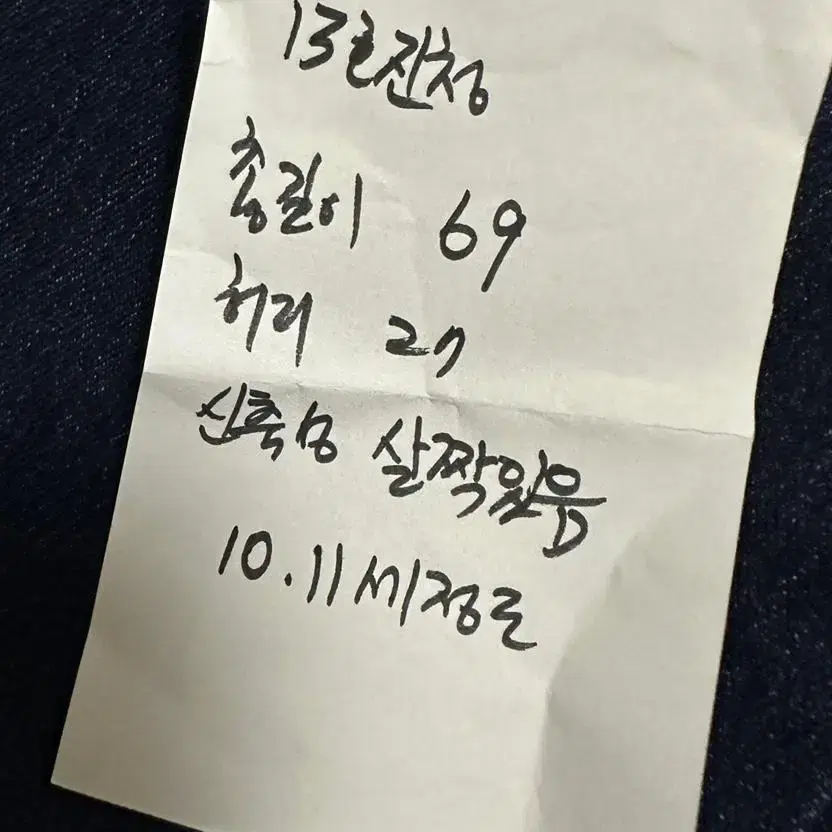 13호진청
총길이 69
허리 27
신축성 살짝있음
10.11세정도